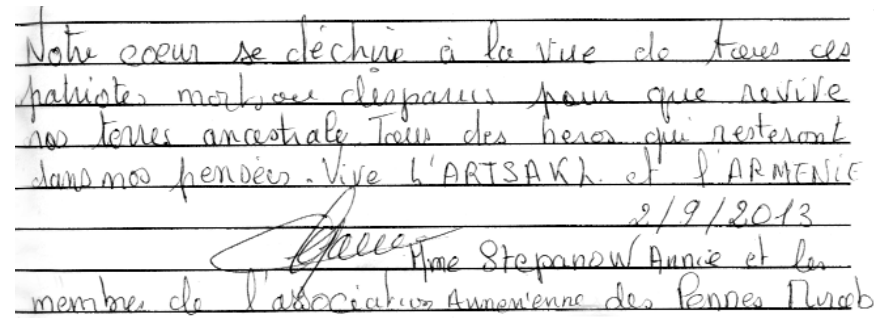 Notre coeur se déchire à la vue de tous ces
patriotes morts ou disparus pour que revive
nos terres ancestrale Tous des heros qui resteront
dans nos pensées. Vive L'ARTSAKh. et l'ARMENIE
2/9/2013
Mme Stepanow Annie et les
membres de l'association Armenienne des Pennes Mirab